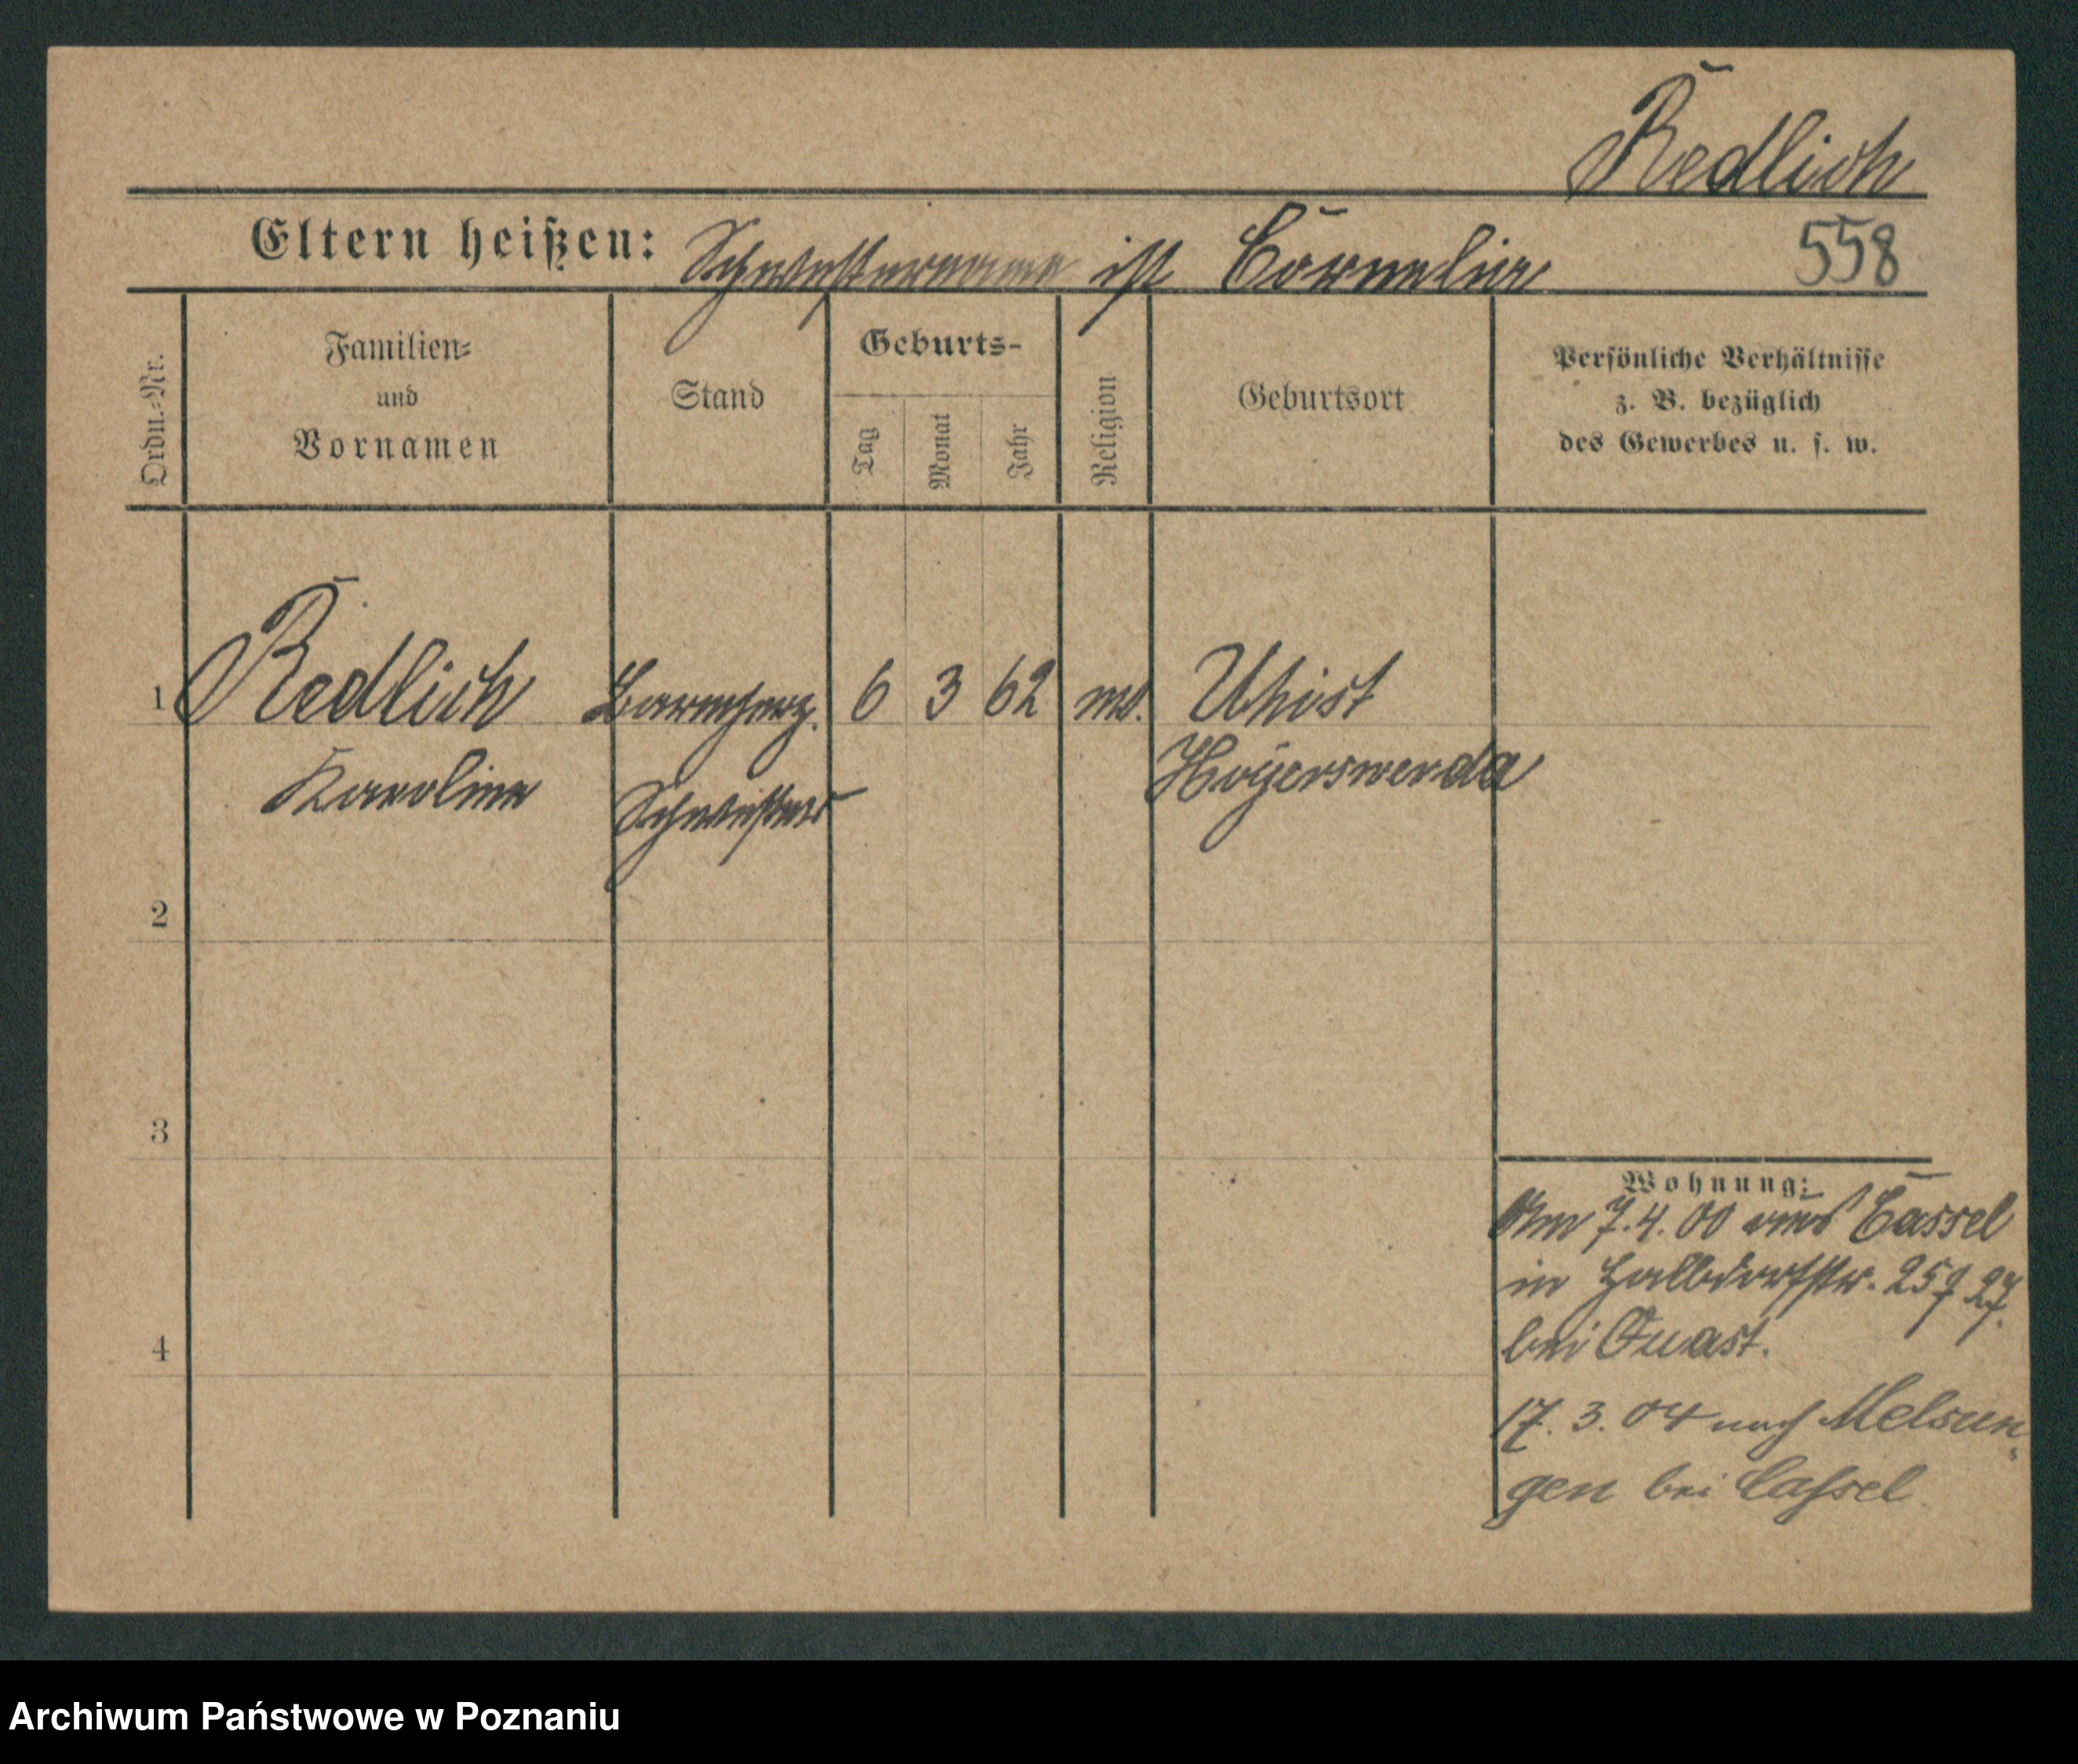 Redlich
Eltern heißen: Schwestername ist Cornelia
558
Ordn.-Nr.
Familien-
und
Vornamen
Stand
Geburts-
Tag
Monat
Jahr
Religion
Geburtsort
Persönliche Verhältnisse
z. B. bezüglich
des Gewerbes u. s. w.
1 Redlich Barmherz. 6 3 62 Uhist
Karoline Schwester Hoyerswerda
2
3
4
Wohnung:
Am 7.4.00 aus Cassel
in Halbdorfstr. 25/27.
bei Quast.
17.3.04 nach Melsun-
gen bei Cassel
Archiwum Państwowe w Poznaniu